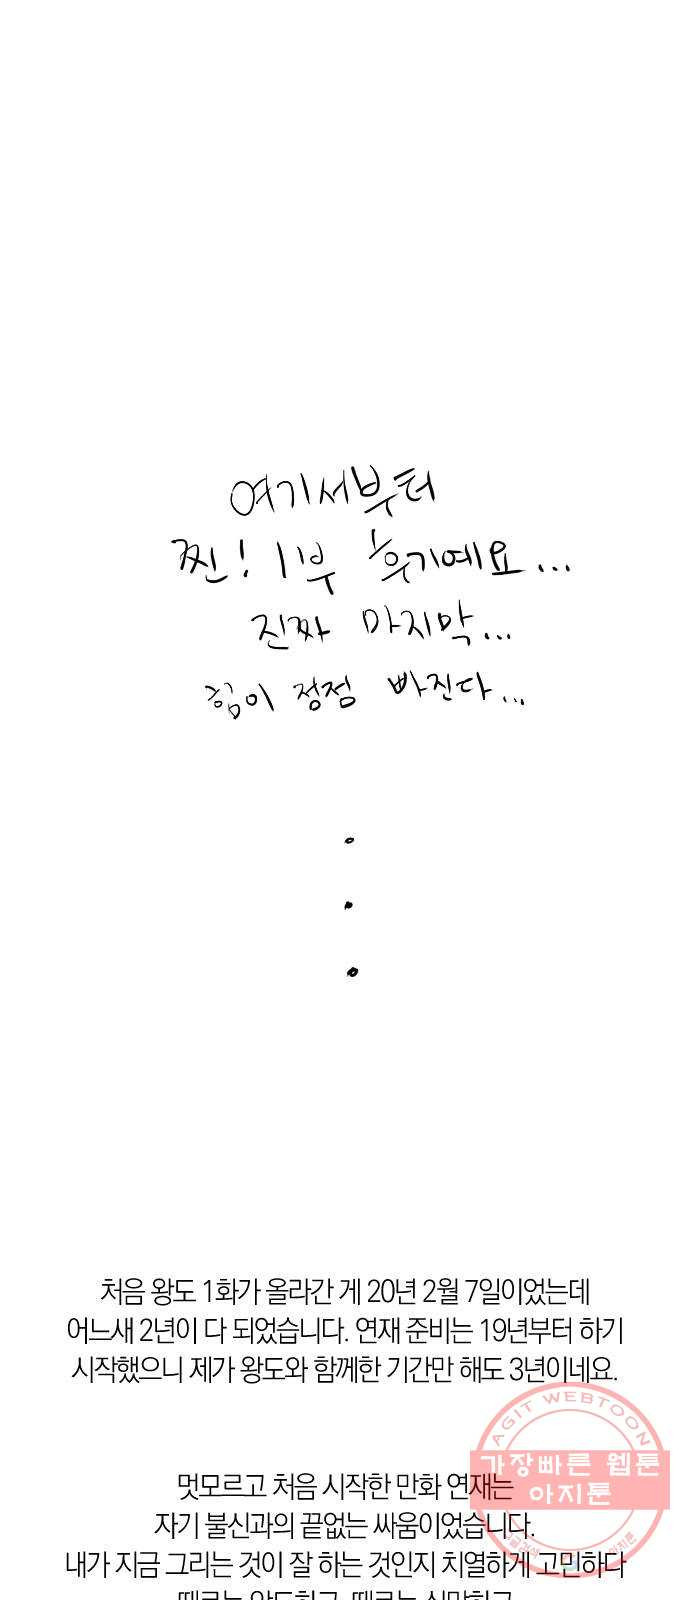 여기서부터
찐! 1부 후기예요...
진짜 마지막...
힘이 점점 빠진다...
처음 왕도 1화가 올라간 게 20년 2월 7일이었는데
어느새 2년이 다 되었습니다. 연재 준비는 19년부터 하기
시작했으니 제가 왕도와 함께한 기간만 해도 3년이네요.
AGIT WEBTOON
가장빠른 웹툰
아지툰
멋모르고 처음 시작한 만화 연재는
자기 불신과의 끝없는 싸움이었습니다.
내가 지금 그리는 것이 잘 하는 것인지 치열하게 고민하다